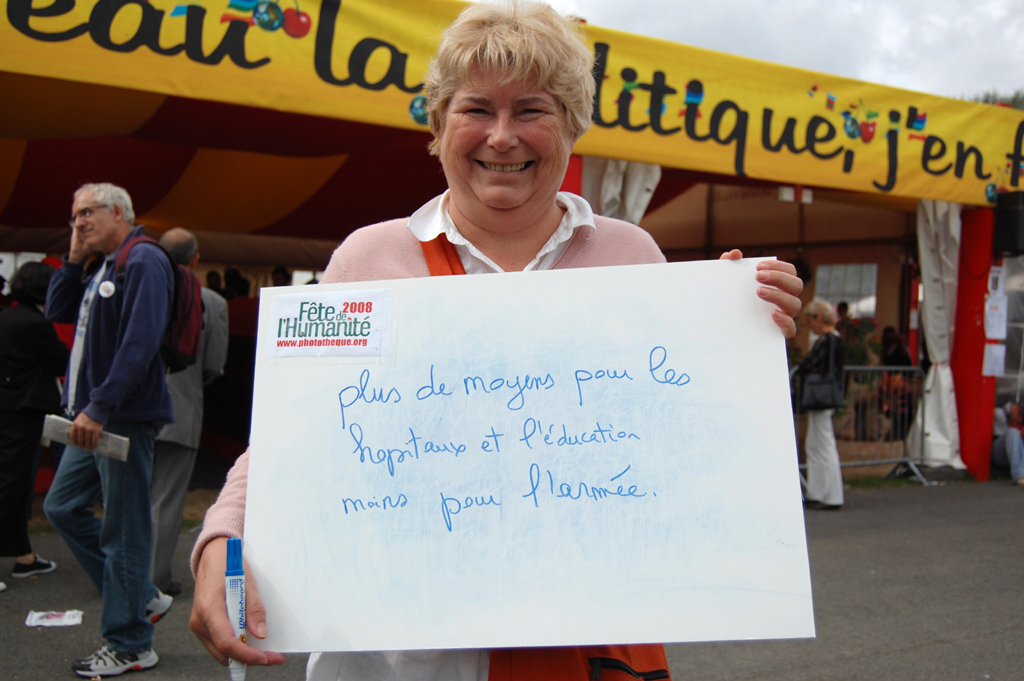 eau la politique, j'en f
Fête 2008
de
l'Humanité
www.phototheque.org
plus de moyens pour les
hopitaux et l'éducation
moins pour l'armée.
Whiteboard